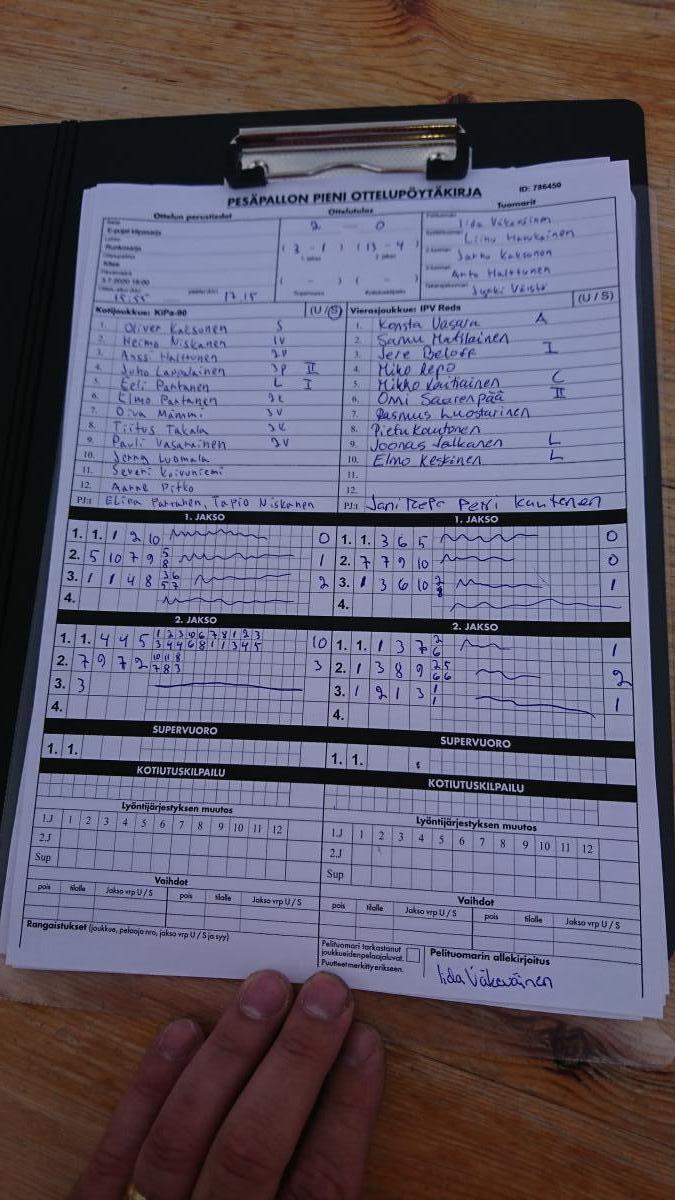 PESÄPALLON PIENI OTTELUPÖYTÄKIRJA
ID: 786450
Ottelun perustiedot
Ottelutulos
Tuomarit
E-pojat
2 - 0
(3 - 1) (13 - 4)
( - ) ( - )
3.7.2020 16:00
15.55 17.15
Iida Väkeväinen
Jarno Kaksonen
Anto Halttunen
Kotijoukkue: KiPa-90 (U / S)
1. Oliver Kaksonen S
2. Heimo Niskanen IV
3. Anssi Halttunen 2V
4. Juho Lappalainen 3P II
5. Eeli Partanen L I
6. Elmo Partanen
7. Oiva Mämmi 3V
8. Tiitus Takala
9. Pauli Vasarainen 2V
10. Jenna Luomala
11. Severi Koivuniemi
12. Aarne Pitko
PJ:t Elina Partanen, Tapio Niskanen
Vierasjoukkue: IPV Reds (U / S)
1. Konsta Vasara A
2. Samu Matilainen
3. Jere Beloff I
4. Miko Repo
5. Mikko Voutilainen C
6. Omi Saarenpää II
7. Rasmus Luostarinen
8. Pietu Kautonen
9. Joonas Jalkanen L
10. Elmo Keskinen L
11.
12.
PJ:t Jani Repo Petri Kautonen
1. JAKSO
1. 1. 1 2 10 0
2. 5 10 7 9 5 8 1
3. 1 1 4 8 36 57 2
4.
1. JAKSO
1. 1. 3 6 5 0
2. 7 7 9 10 0
3. 1 3 6 10 2 8 1
4.
2. JAKSO
1. 1. 4 4 5 10
2. 7 9 7 2 10 11 8 7 8 3 3
3. 3
4.
2. JAKSO
1. 1. 1 3 7 2 6 1
2. 1 3 8 9 25 66 2
3. 1 2 1 3 1 1 1
4.
SUPERVUORO
1. 1.
SUPERVUORO
1. 1.
KOTIUTUSKILPAILU
KOTIUTUSKILPAILU
Lyöntijärjestyksen muutos
1.J 1 2 3 4 5 6 7 8 9 10 11 12
2.J
Sup
Lyöntijärjestyksen muutos
1.J 1 2 3 4 5 6 7 8 9 10 11 12
2.J
Sup
Vaihdot
pois tilalle Jakso vrp U / S pois tilalle Jakso vrp U / S
Vaihdot
pois tilalle Jakso vrp U / S pois tilalle Jakso vrp U / S
Rangaistukset (joukkue, pelaaja nro, jakso vrp U / S ja syy)
Pelituomari tarkastanut
joukkueiden pelaajaluvat.
Puutteet merkitty erikseen.
Pelituomarin allekirjoitus
Iida Väkeväinen